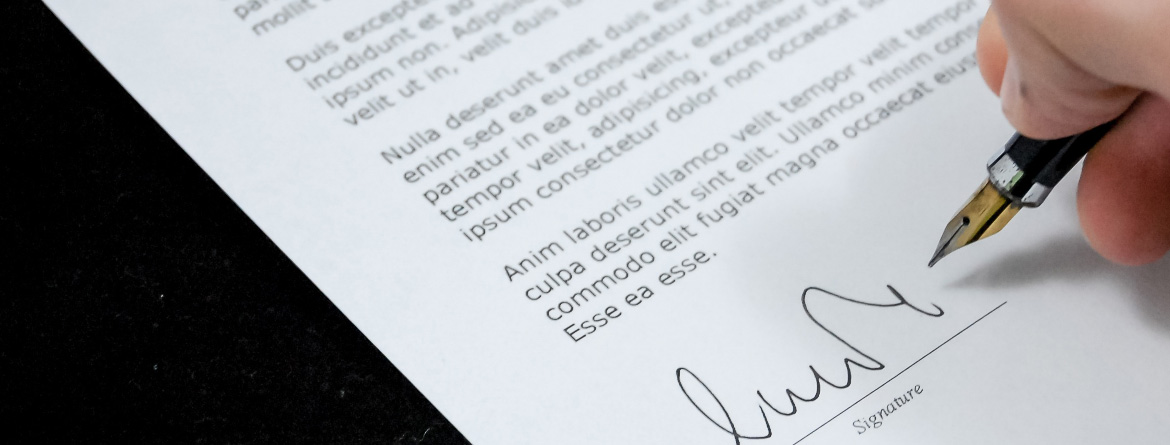 mollit
Duis excepte
incididunt et ad
ipsum non. Adipisi
velit ut in, velit duis
Nulla deserunt amet duis es
enim sed ea eu consectetur ut,
pariatur in ea dolor velit, excepteu
tempor velit, adipisicing, excepteur
ipsum consectetur dolor non occaecat
Anim laboris ullamco velit tempor velit tempor
culpa deserunt sint elit. Ullamco minim cons
commodo elit fugiat magna occaecat eius
Esse ea esse.
Signature